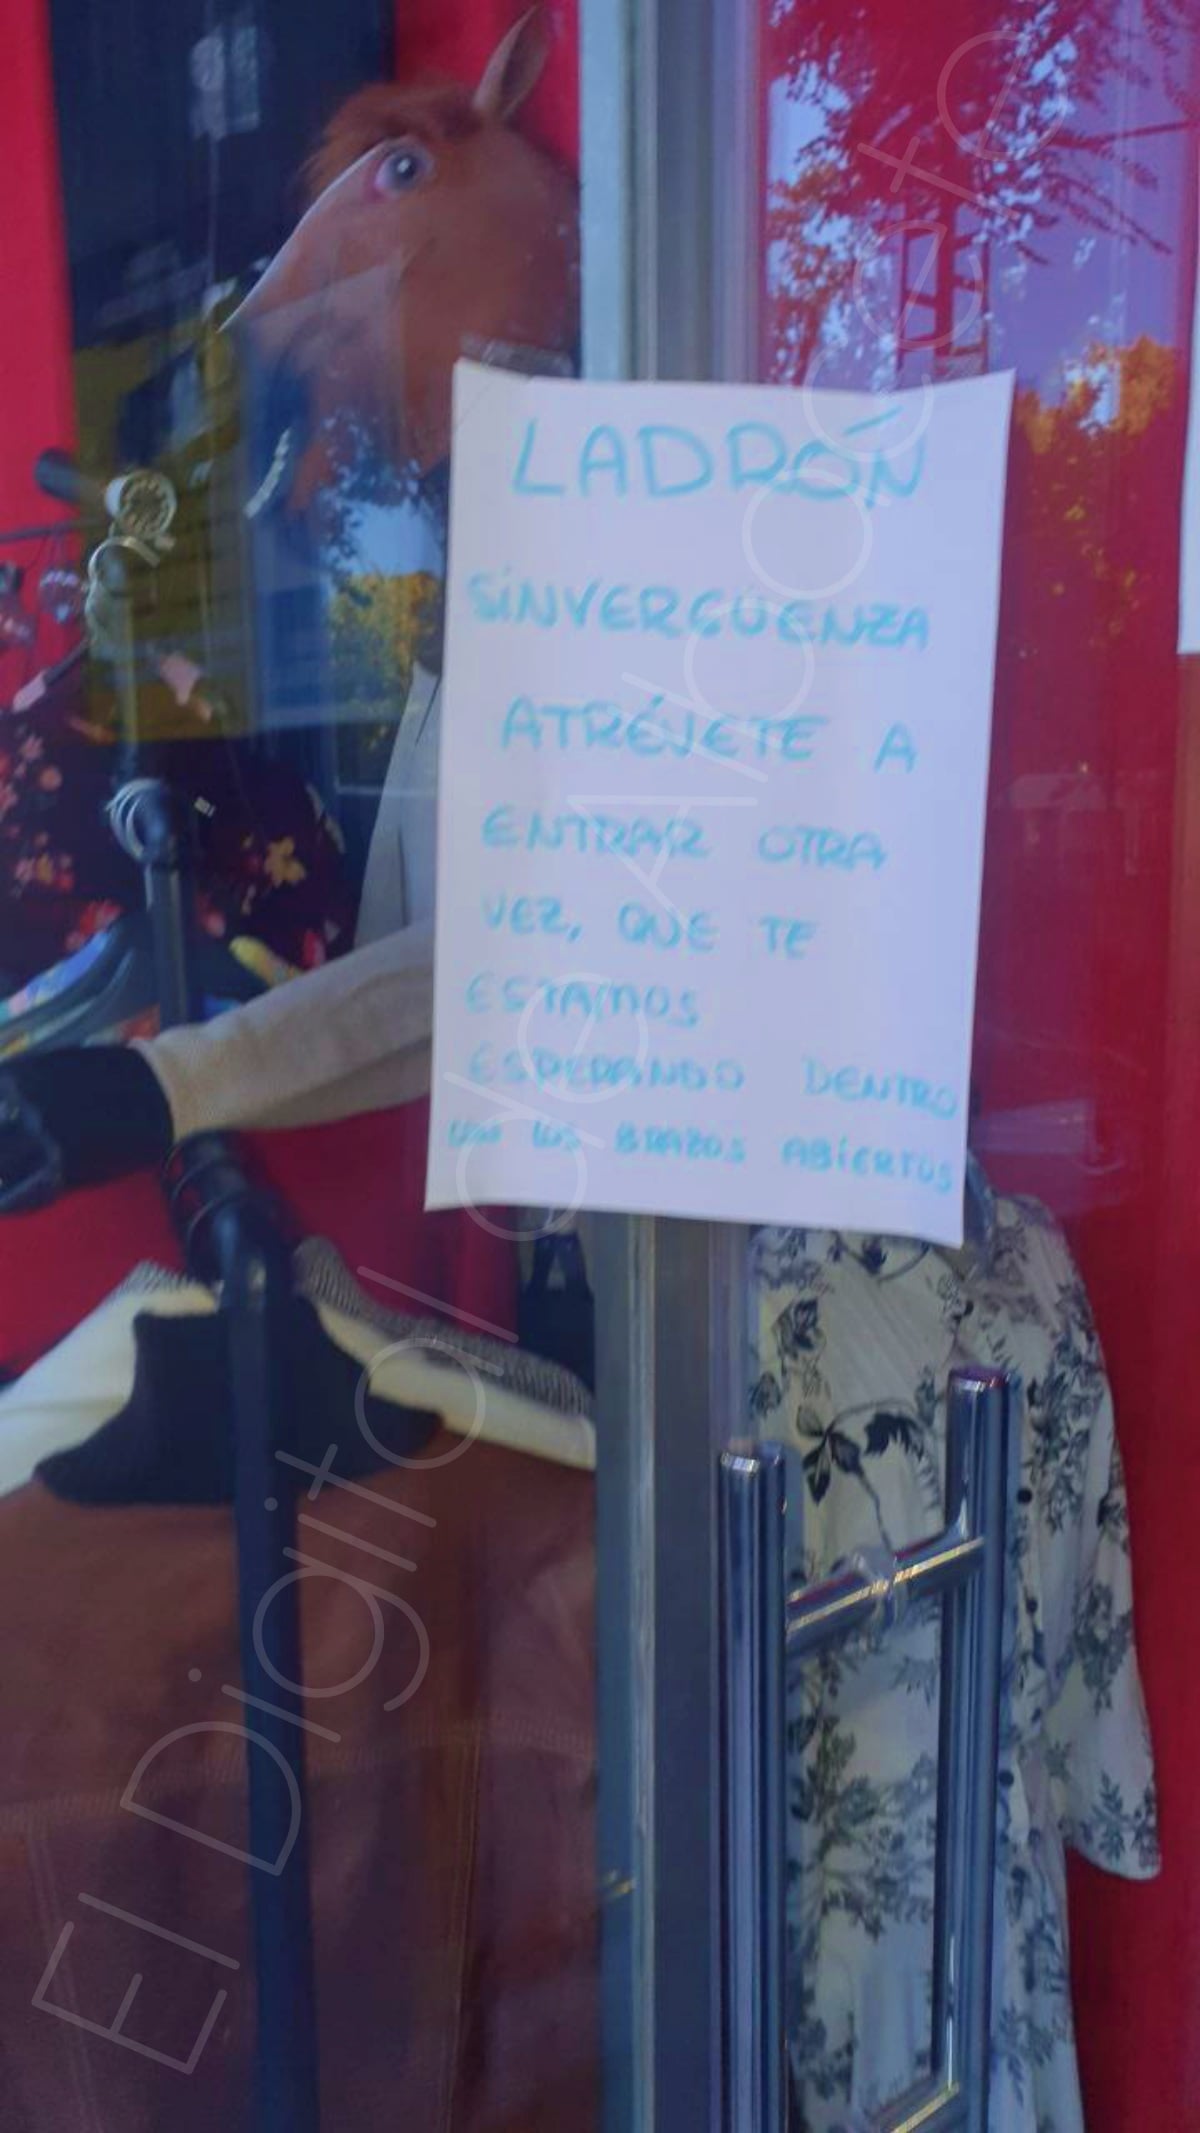 LADRÓN
SiNVERGÜENZA
ATRÉVETE A
ENTRAR OTRA
VEZ, QUE TE
ESTAMOS
ESPERANDO DENTRO
CON LOS BRAZOS ABiERTOS
El Digital de Albacete